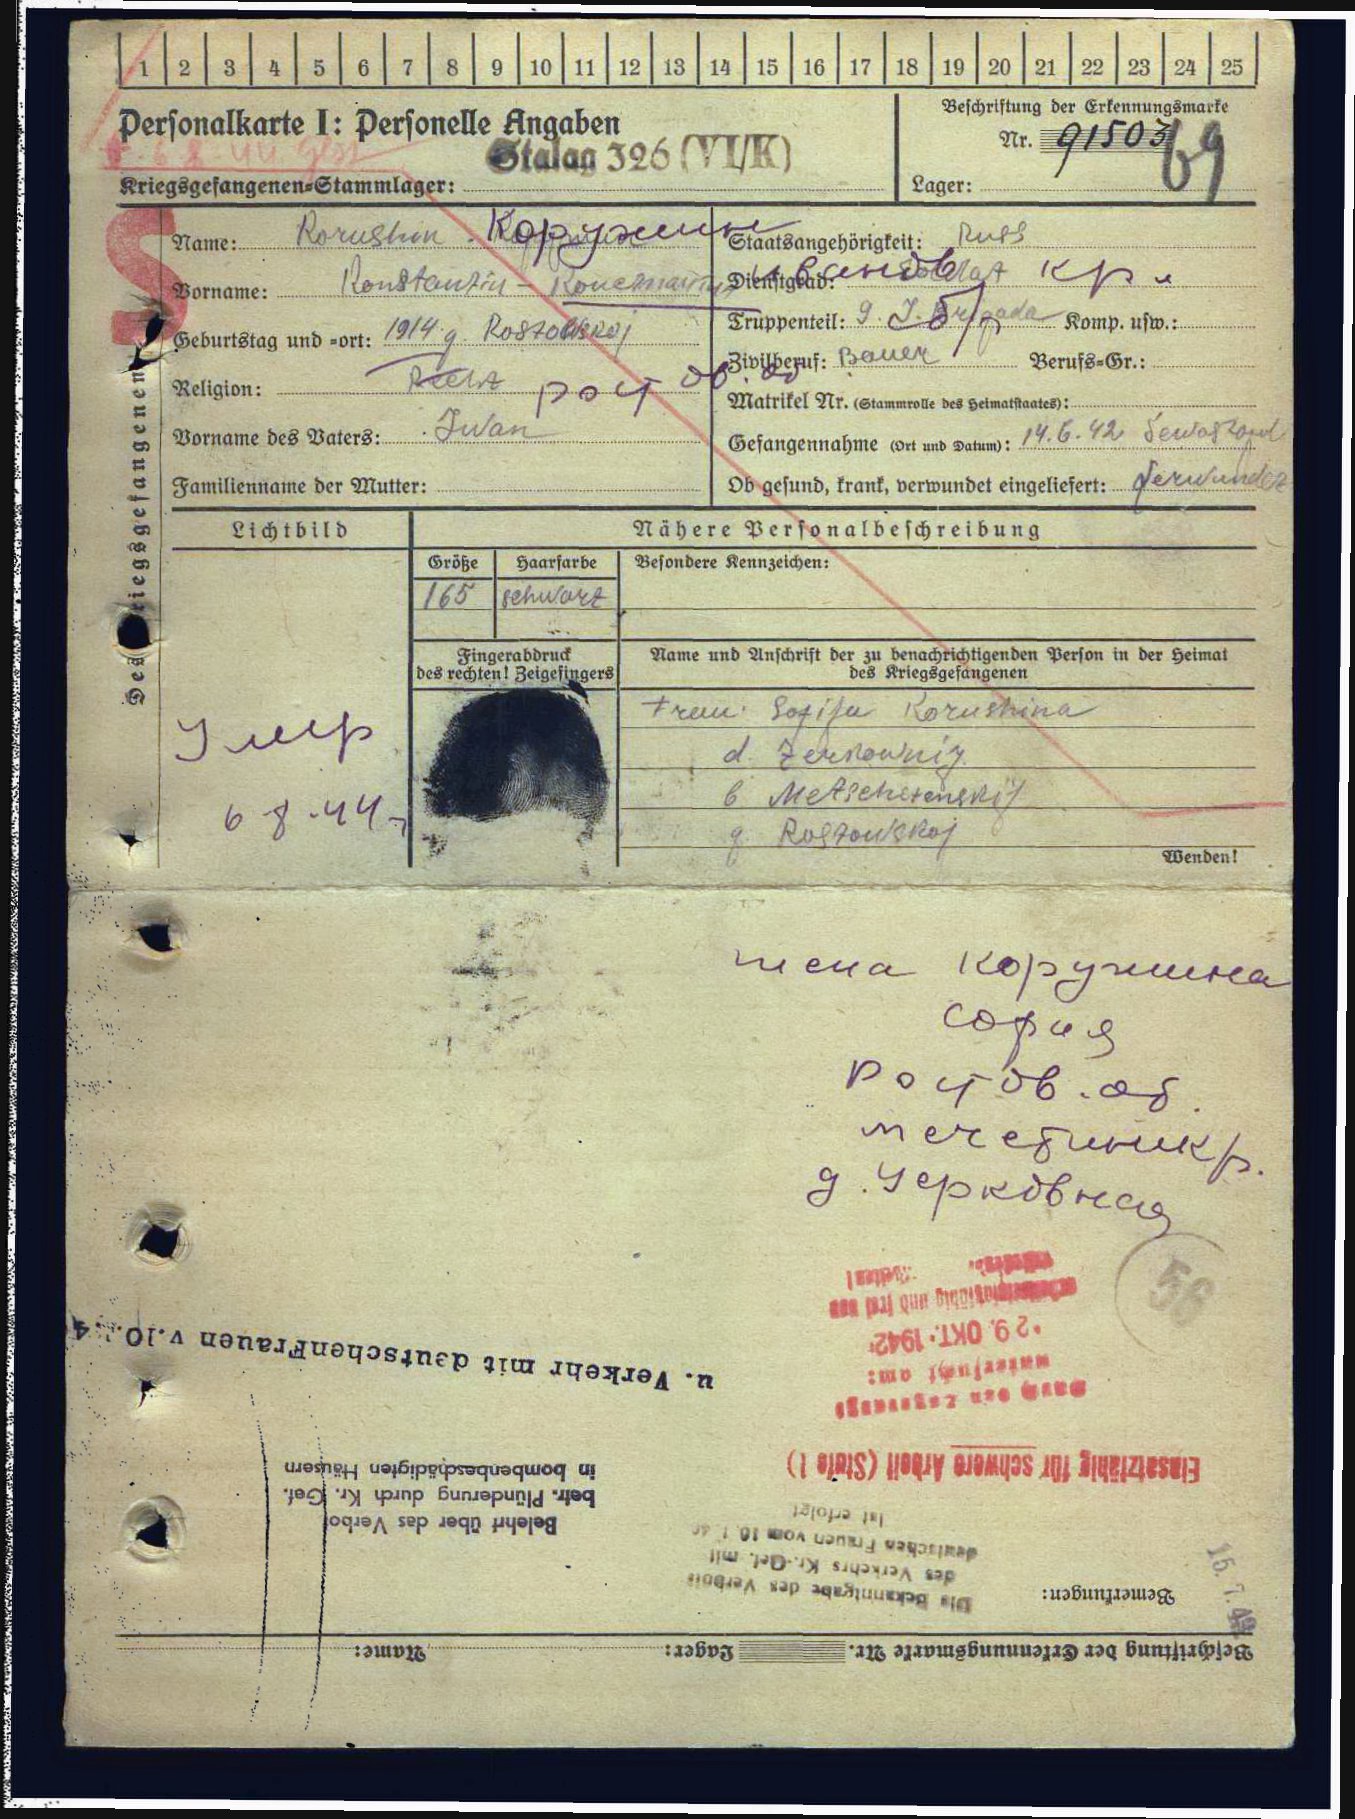 1 2 3 4 5 6 7 8 9 10 11 12 13 14 15 16 17 18 19 20 21 22 23 24 25
Personalkarte I: Personelle Angaben
Beschriftung der Erkennungsmarke
Nr. 91503
69
6.8.44 gest
Stalag 326 (VI/K)
Kriegsgefangenen-Stammlager:
Lager:
S
Des Kriegsgefangenen
Name: Korushin Коружин
Staatsangehörigkeit: Russ
Vorname: Konstantin - Константин Иванов
Dienstgrad: Soldat кр.
Geburtstag und -ort: 1914 g. Rostowskoj
Truppenteil: 9. J. Brigada Komp. usw.:
Religion: рост ов. об
Zivilberuf: Bauer Berufs-Gr.:
Matrikel Nr. (Stammrolle des Heimatstaates):
Vorname des Vaters: Iwan
Gefangennahme (Ort und Datum): 14.6.42 Sewastopol
Familienname der Mutter:
Ob gesund, krank, verwundet eingeliefert: Verwundet
Lichtbild
Nähere Personalbeschreibung
Größe Haarfarbe Besondere Kennzeichen:
165 schwarz
Fingerabdruck des rechten! Zeigefingers
Name und Anschrift der zu benachrichtigenden Person in der Heimat
des Kriegsgefangenen
Frau: Sofija Korushina
d. Zerkownij
b Metschetenskij
g. Rostowskoj
Умер
6 8.44 г
Wenden!
жена Коружина
София
Ростов. об.
мечетинск р.
д. Церковная
56
arbeitsfähig und frei von
29. OKT. 1942
untersucht am:
Durch den Lagerarzt
u. Verkehr mit deutschenFrauen v.10.
Einsatzfähig für schwere Arbeit (Stufe I)
in bombenbeschädigten Häusern
betr. Plünderung durch Kr. Gef.
Belehrt über das Verbot
ist erfolgt
deutschen Frauen vom 10.1.40
des Verkehrs Kr.-Gef. mit
Die Bekanntgabe des Verbots
15.7.42
Bemerkungen:
Beschriftung der Erkennungsmarke Nr. Lager: Name: